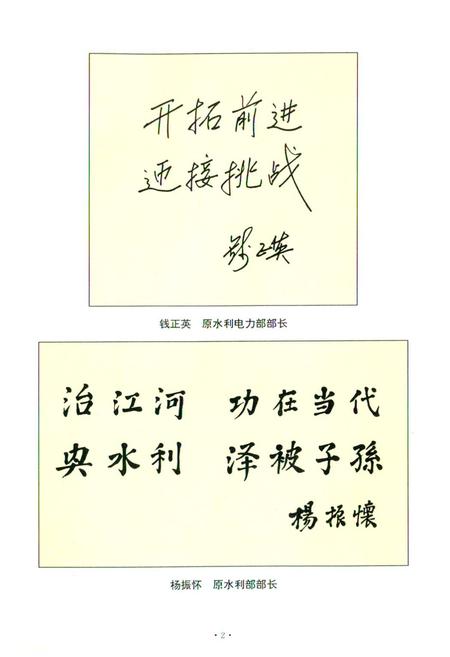 开拓前进
迎接挑战
钱正英
钱正英 原水利电力部部长
治江河 功在当代
兴水利 泽被子孫
楊振懷
杨振怀 原水利部部长
·2·